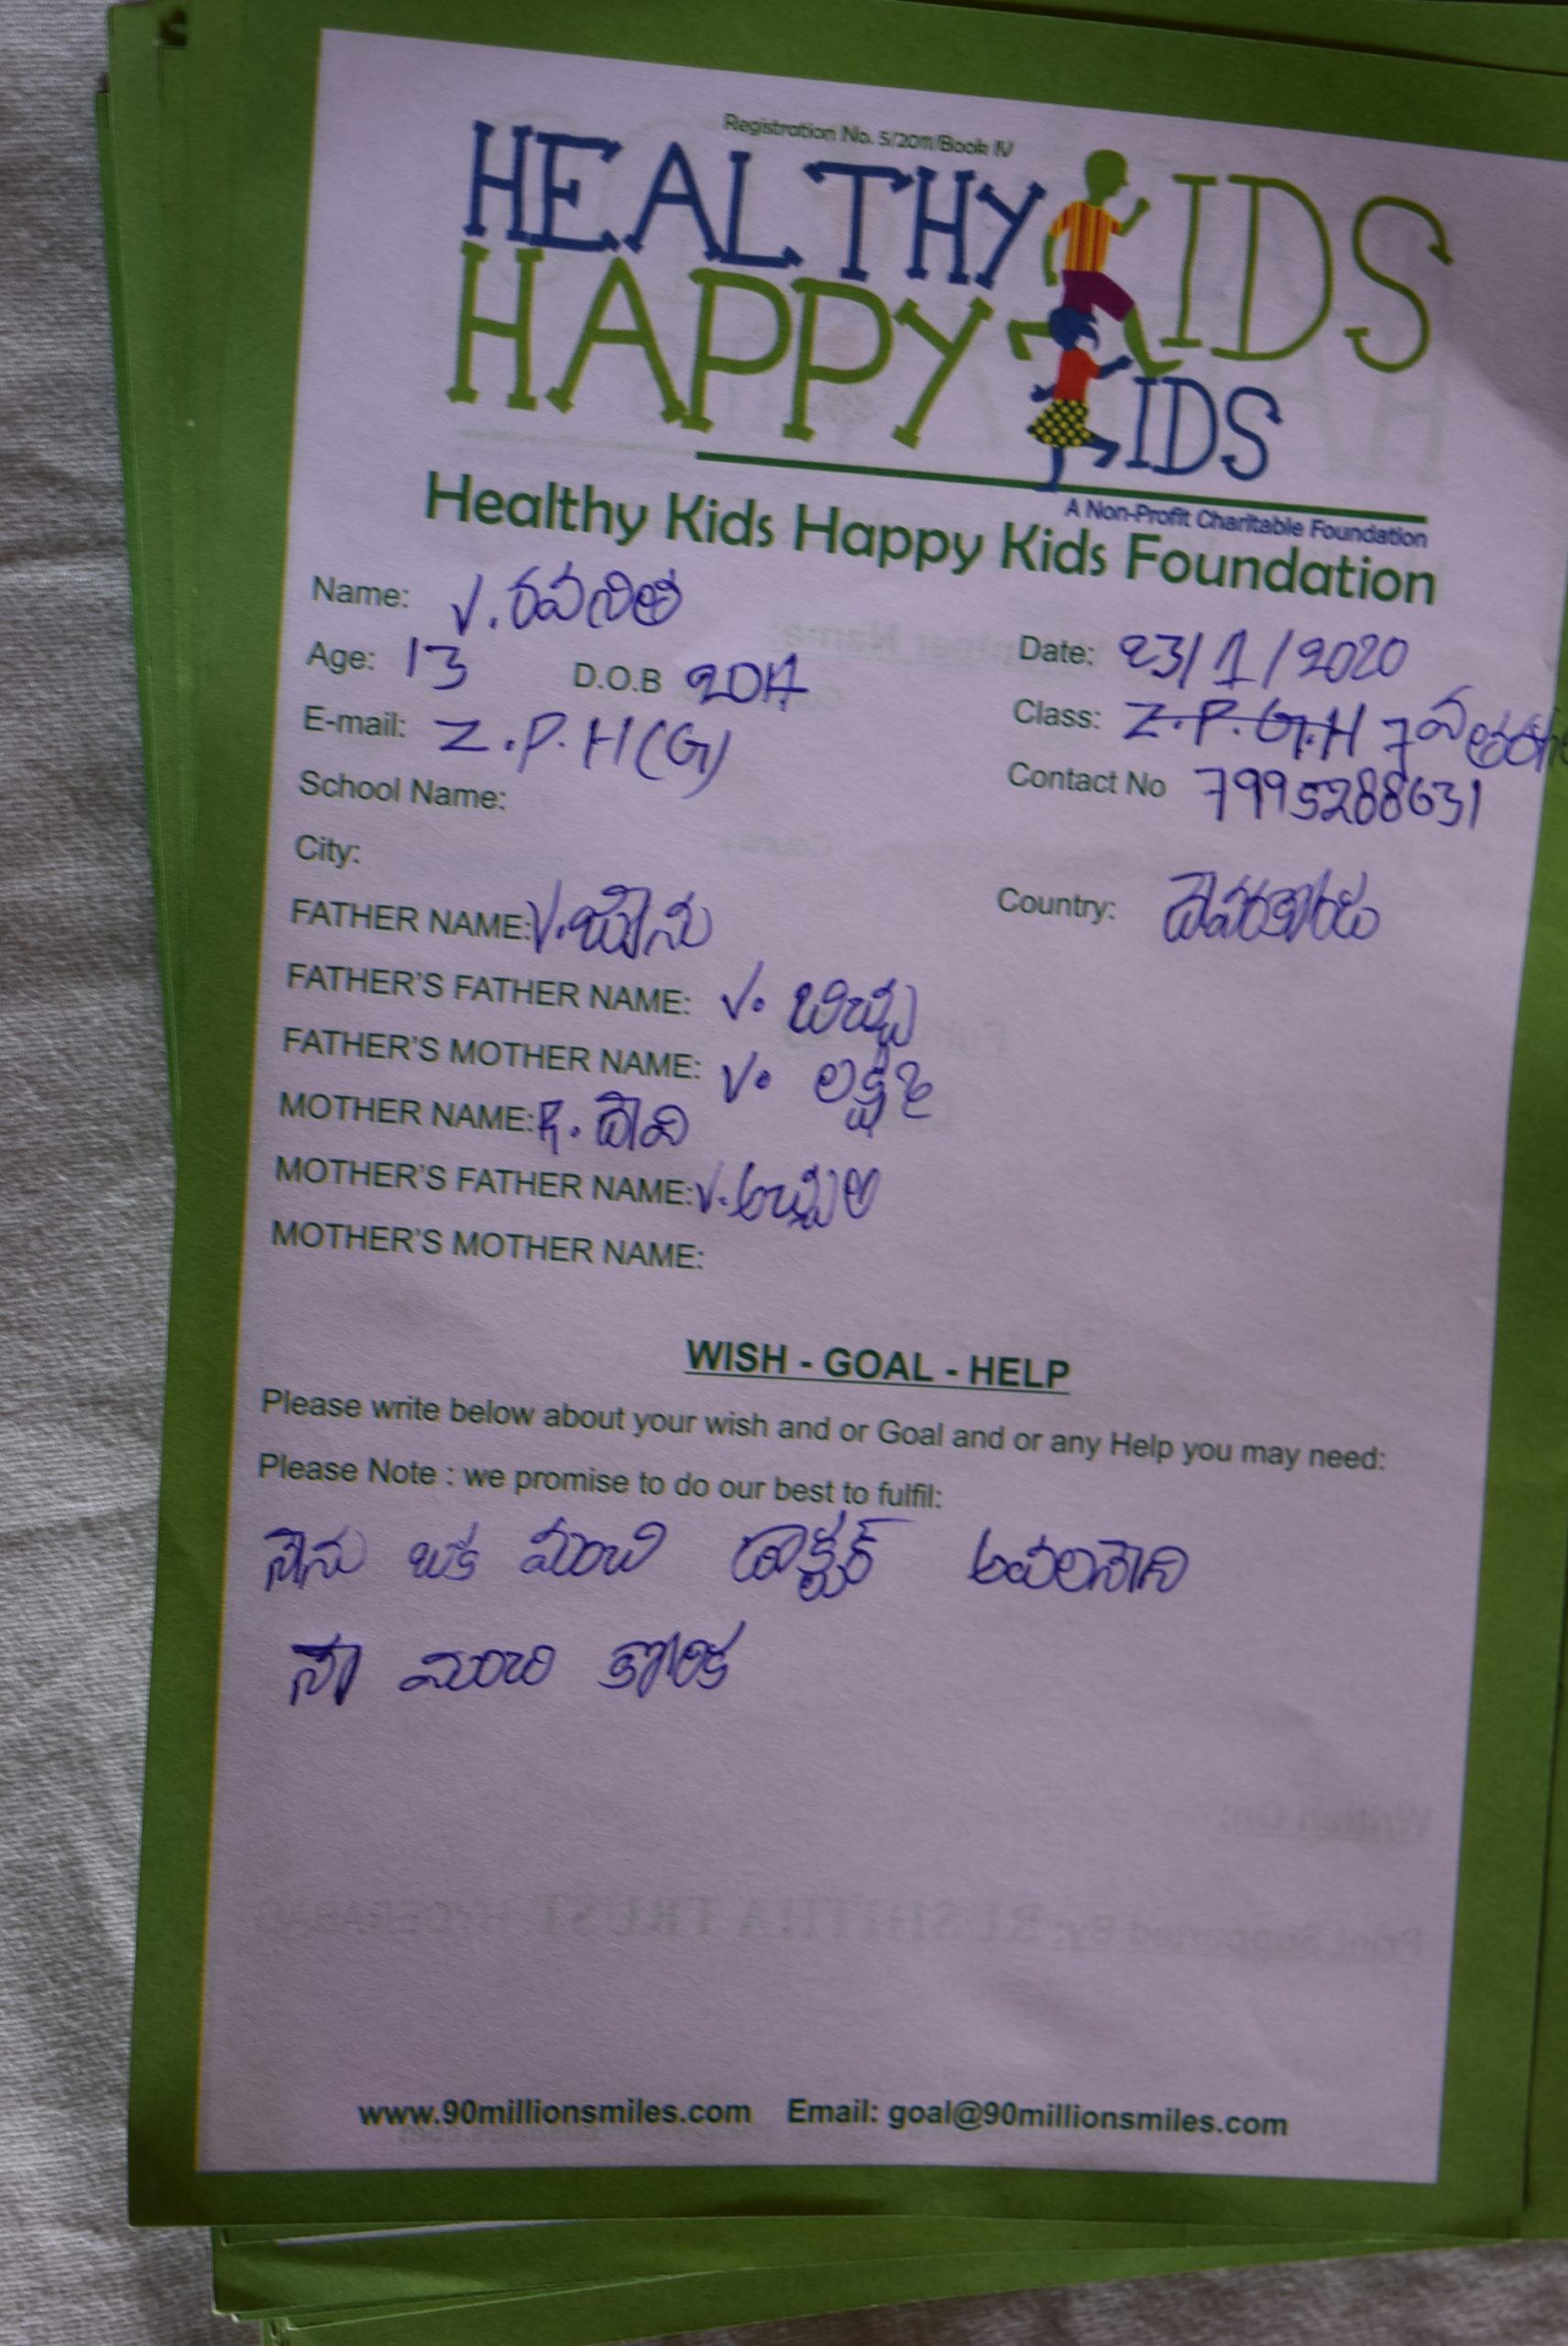 Registration No. 5/2011/Book IV
HEALTHY KIDS
HAPPY KIDS
A Non-Profit Charitable Foundation
Healthy Kids Happy Kids Foundation
Name: V.
Date: 23/1/2020
Age: 13 D.O.B 2017
Class: Z.P.G.H 7వ
E-mail: Z.P.H(G)
Contact No 7995288631
School Name:
City:
Country: దేవరకొండ
FATHER NAME: V.
FATHER'S FATHER NAME: V. బిచ్య
FATHER'S MOTHER NAME: V. లక్ష్మి
MOTHER NAME: R. దేవి
MOTHER'S FATHER NAME: V.
MOTHER'S MOTHER NAME:
WISH - GOAL - HELP
Please write below about your wish and or Goal and or any Help you may need:
Please Note : we promise to do our best to fulfil:
నేను ఒక మంచి డాక్టర్ అవలనేది
నా మంచి కోరిక
www.90millionsmiles.com Email: goal@90millionsmiles.com